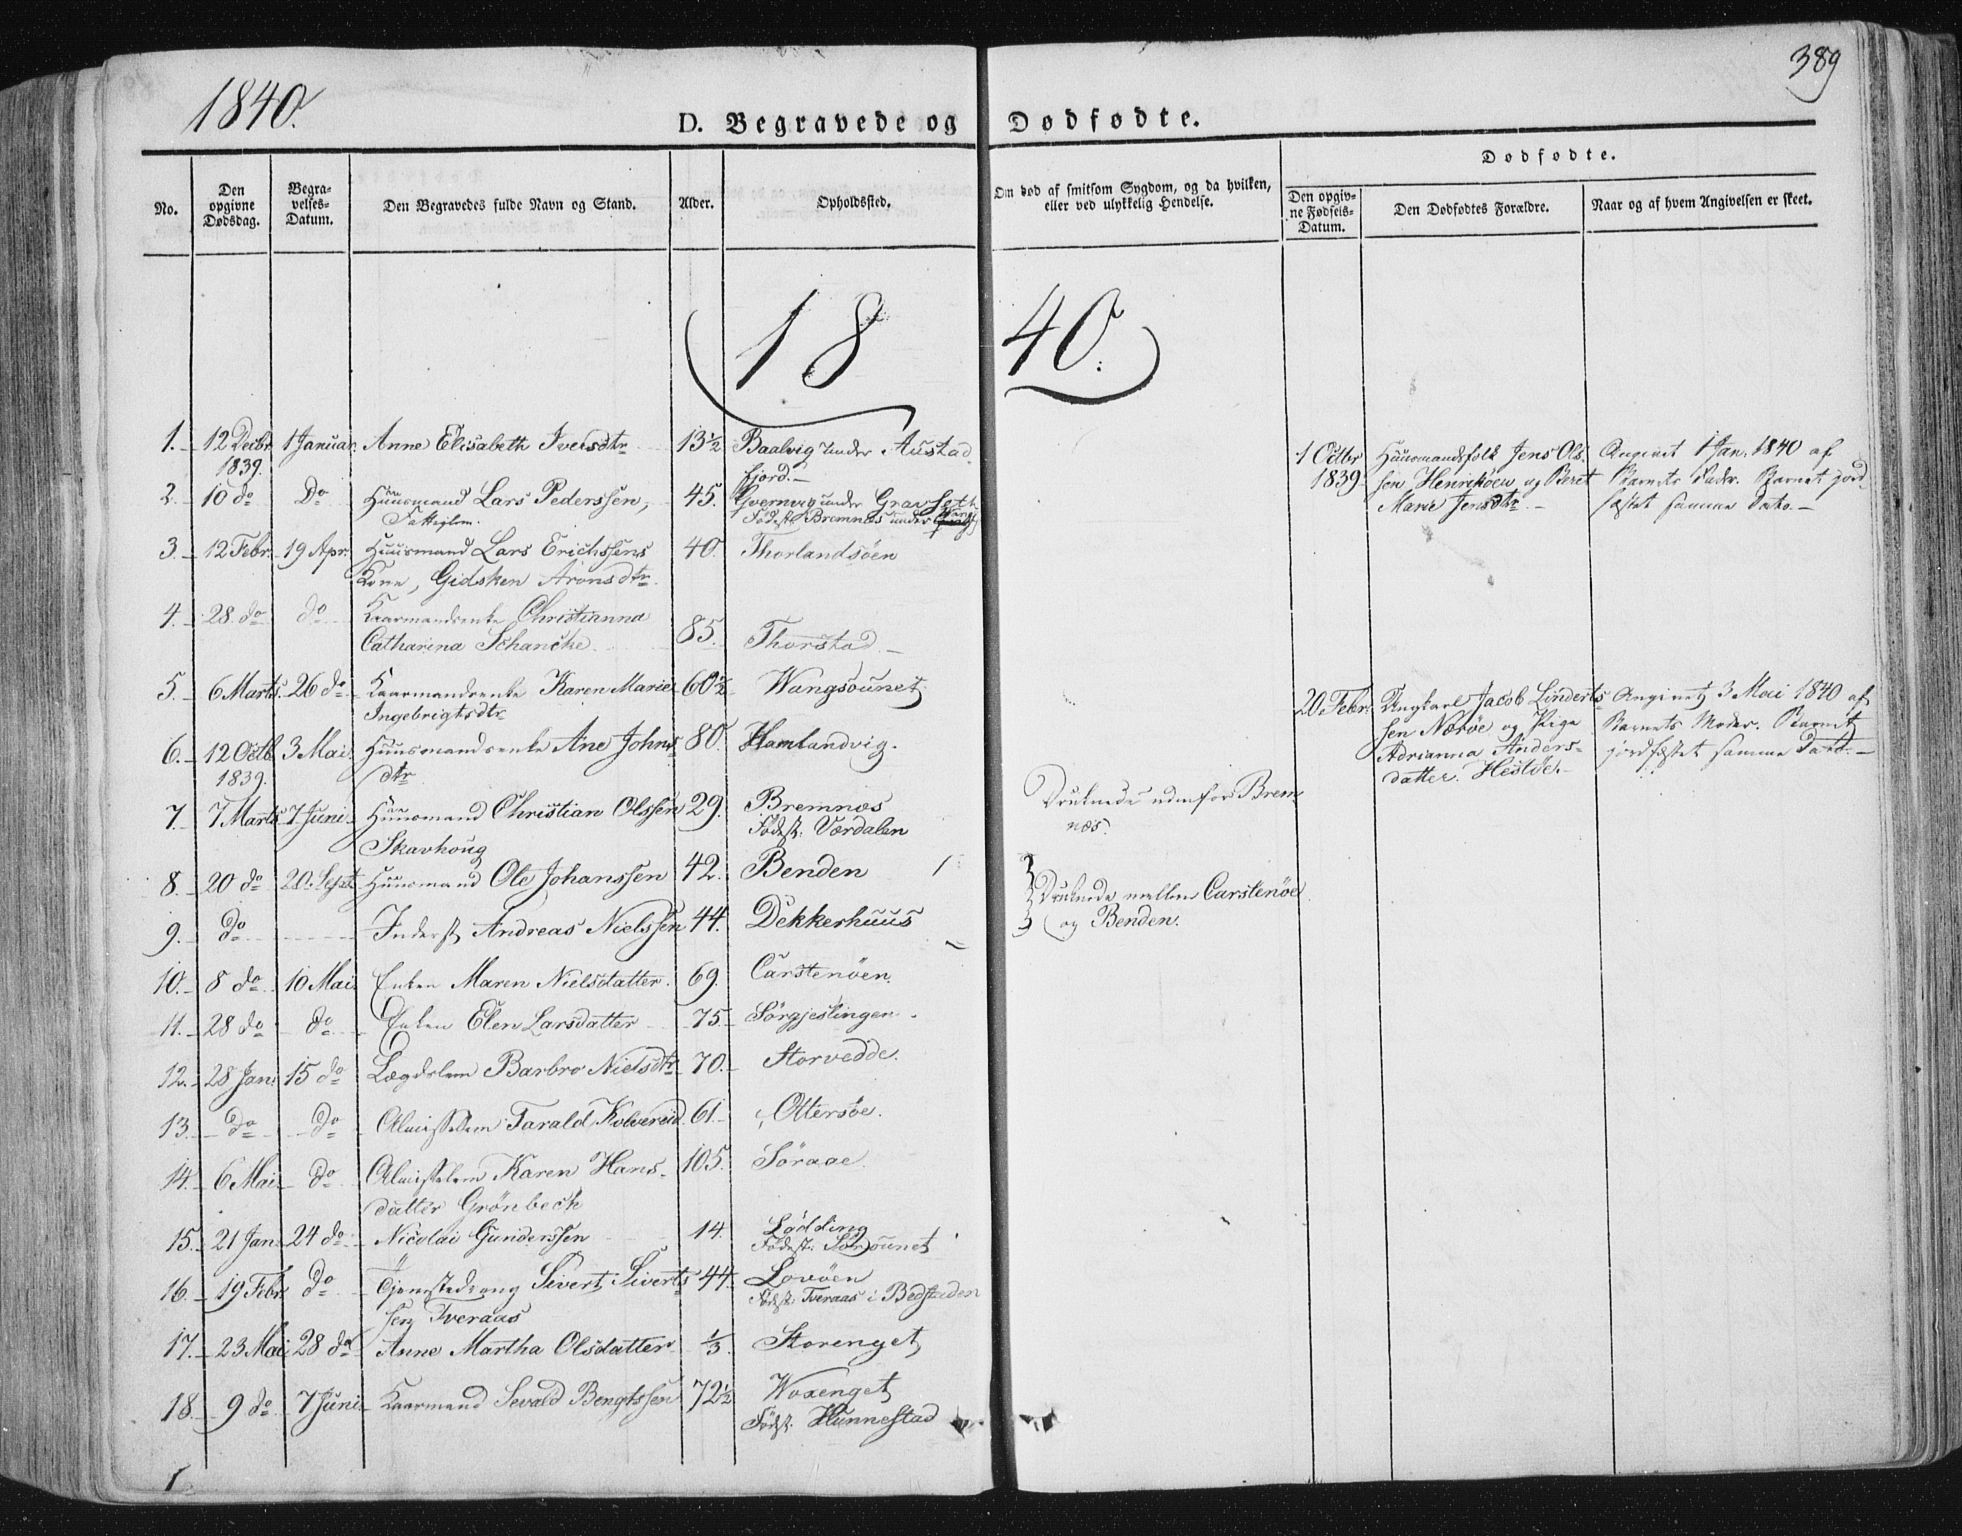 1840.
389
D. Begravede og Dødfødte.
No.
Den opgivne Dødsdag.
Begravelses-Datum.
Den Begravedes fulde Navn og Stand.
Alder.
Opholdssted.
Om død af smitsom Sygdom, og da hvilken,
eller ved ulykkelig Hendelse.
Dødfødte.
Den opgivne Fødsels-Datum.
Den Dødfødtes Forældre.
Naar og af hvem Angivelsen er skeet.
18 40.
1. 12 Decbr 1 Januar Anne Elisabeth Iversdtr 13½ Baalvig under Austad
1839. fjord.
2. 10 do Do Huusmand Lars Pederssen, 45. under
Fattiglem. Fødest. Bremnæs under
3. 12 Febr. 19 Apr. Huusmand Lars Erichssens 40. Thorlandsöen
Kone, Gidsken Aronsdtr.
4. 28 do do Kaarmandsenke Christianna
Catharina Schancke 85. Thorstad.
5. 6 Marts 26 do Kaarmandsenke Karen Marie 60½ Wangsounet
Ingebrigtsdtr
6. 12 Octb. 3 Mai Huusmandsenke Ane Johns 80. Hamlandvig.
1839. dtr
7. 7 Marts 7 Juni Huusmand Christian Olssen 29. Bremnæs
Skavhoug Fødest. Værdalen
Druknede udenfor Brem
næs.
8. 20 do 20 Sept Huusmand Ole Johanssen 42. Benden
9. do Inderst Andreas Nielssen 44. Dekkerhuus
Druknede mellem Carstenøe
og Benden.
10. 8 do 10 Mai Enken Maren Nielsdatter. 69. Carstenöen.
11. 28 do do Enken Elen Larsdatter 75 Sörgjeslingen
12. 28 Jan. 15 do Lægdslem Barbro Nielsdtr 70. Storvedde.
13. do do Almisselem Tarald Kolvereid 61. Ottersöe.
14. 6 Mai do Almisselem Karen Hans- 105. Söraae.
datter Grönbeck
15. 21 Jan. 24 do Nicolai Gunderssen 14. Lödding
Fødest. Sörsounet
16. 19 Febr do Tjenstedreng Sivert Siverts 44. Lovöen
sen Tveraas Fødest. Tveraas i Bedstaden
17. 23 Mai 28 do Anne Martha Olsdatter ⅓ Storenget
18. 9 do 7 Juni Kaarmand Sevald Bengtssen 72½ Woxenget
Fødest. Hunnestad
1 Octbr Huusmandsfolk Jens Ols- Angivet 1 Jan. 1840 af
1839 sen Henriksöen og Beret Barnets Fader. Barnet jord
Marie Jensdtr fæstet samme Dato.
20 Febr. Ungkarl Jacob Linderts Angivet 3 Mai 1840 af
sen Næröe og Pige Barnets Moder. Barnet
Adrianna Anders- jordfæstet samme Dato.
datter. Hestöe.